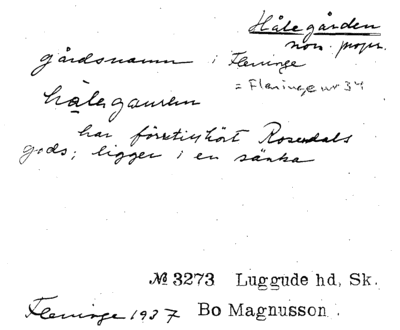 Hålegården
nom. propr.
gårdsnamn i Fleninge
= Fleninge nr 34
hålagauren
har förr tillhört Rosendals
gods; ligger i en sänka
№ 3273 Luggude hd, Sk.
Fleninge 1937 Bo Magnusson.